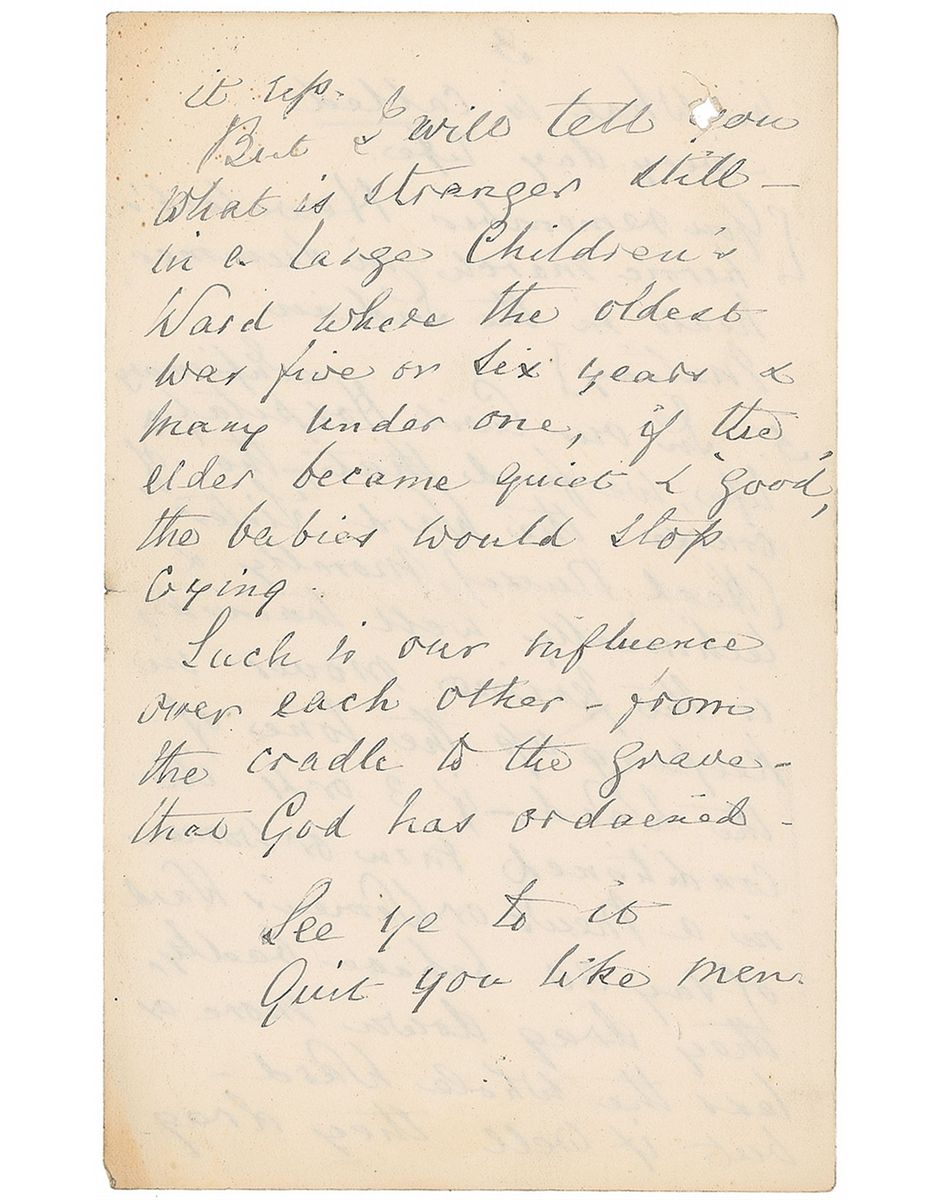 it up.
But I will tell you
what is stranger still –
in a large Children's
Ward where the oldest
was five or six years &
many under one, if the
elder became quiet & 'good',
the babies would stop
crying.
Such is our influence
over each other – from
the cradle to the grave –
that God has ordained –
See ye to it
Quit you like men.